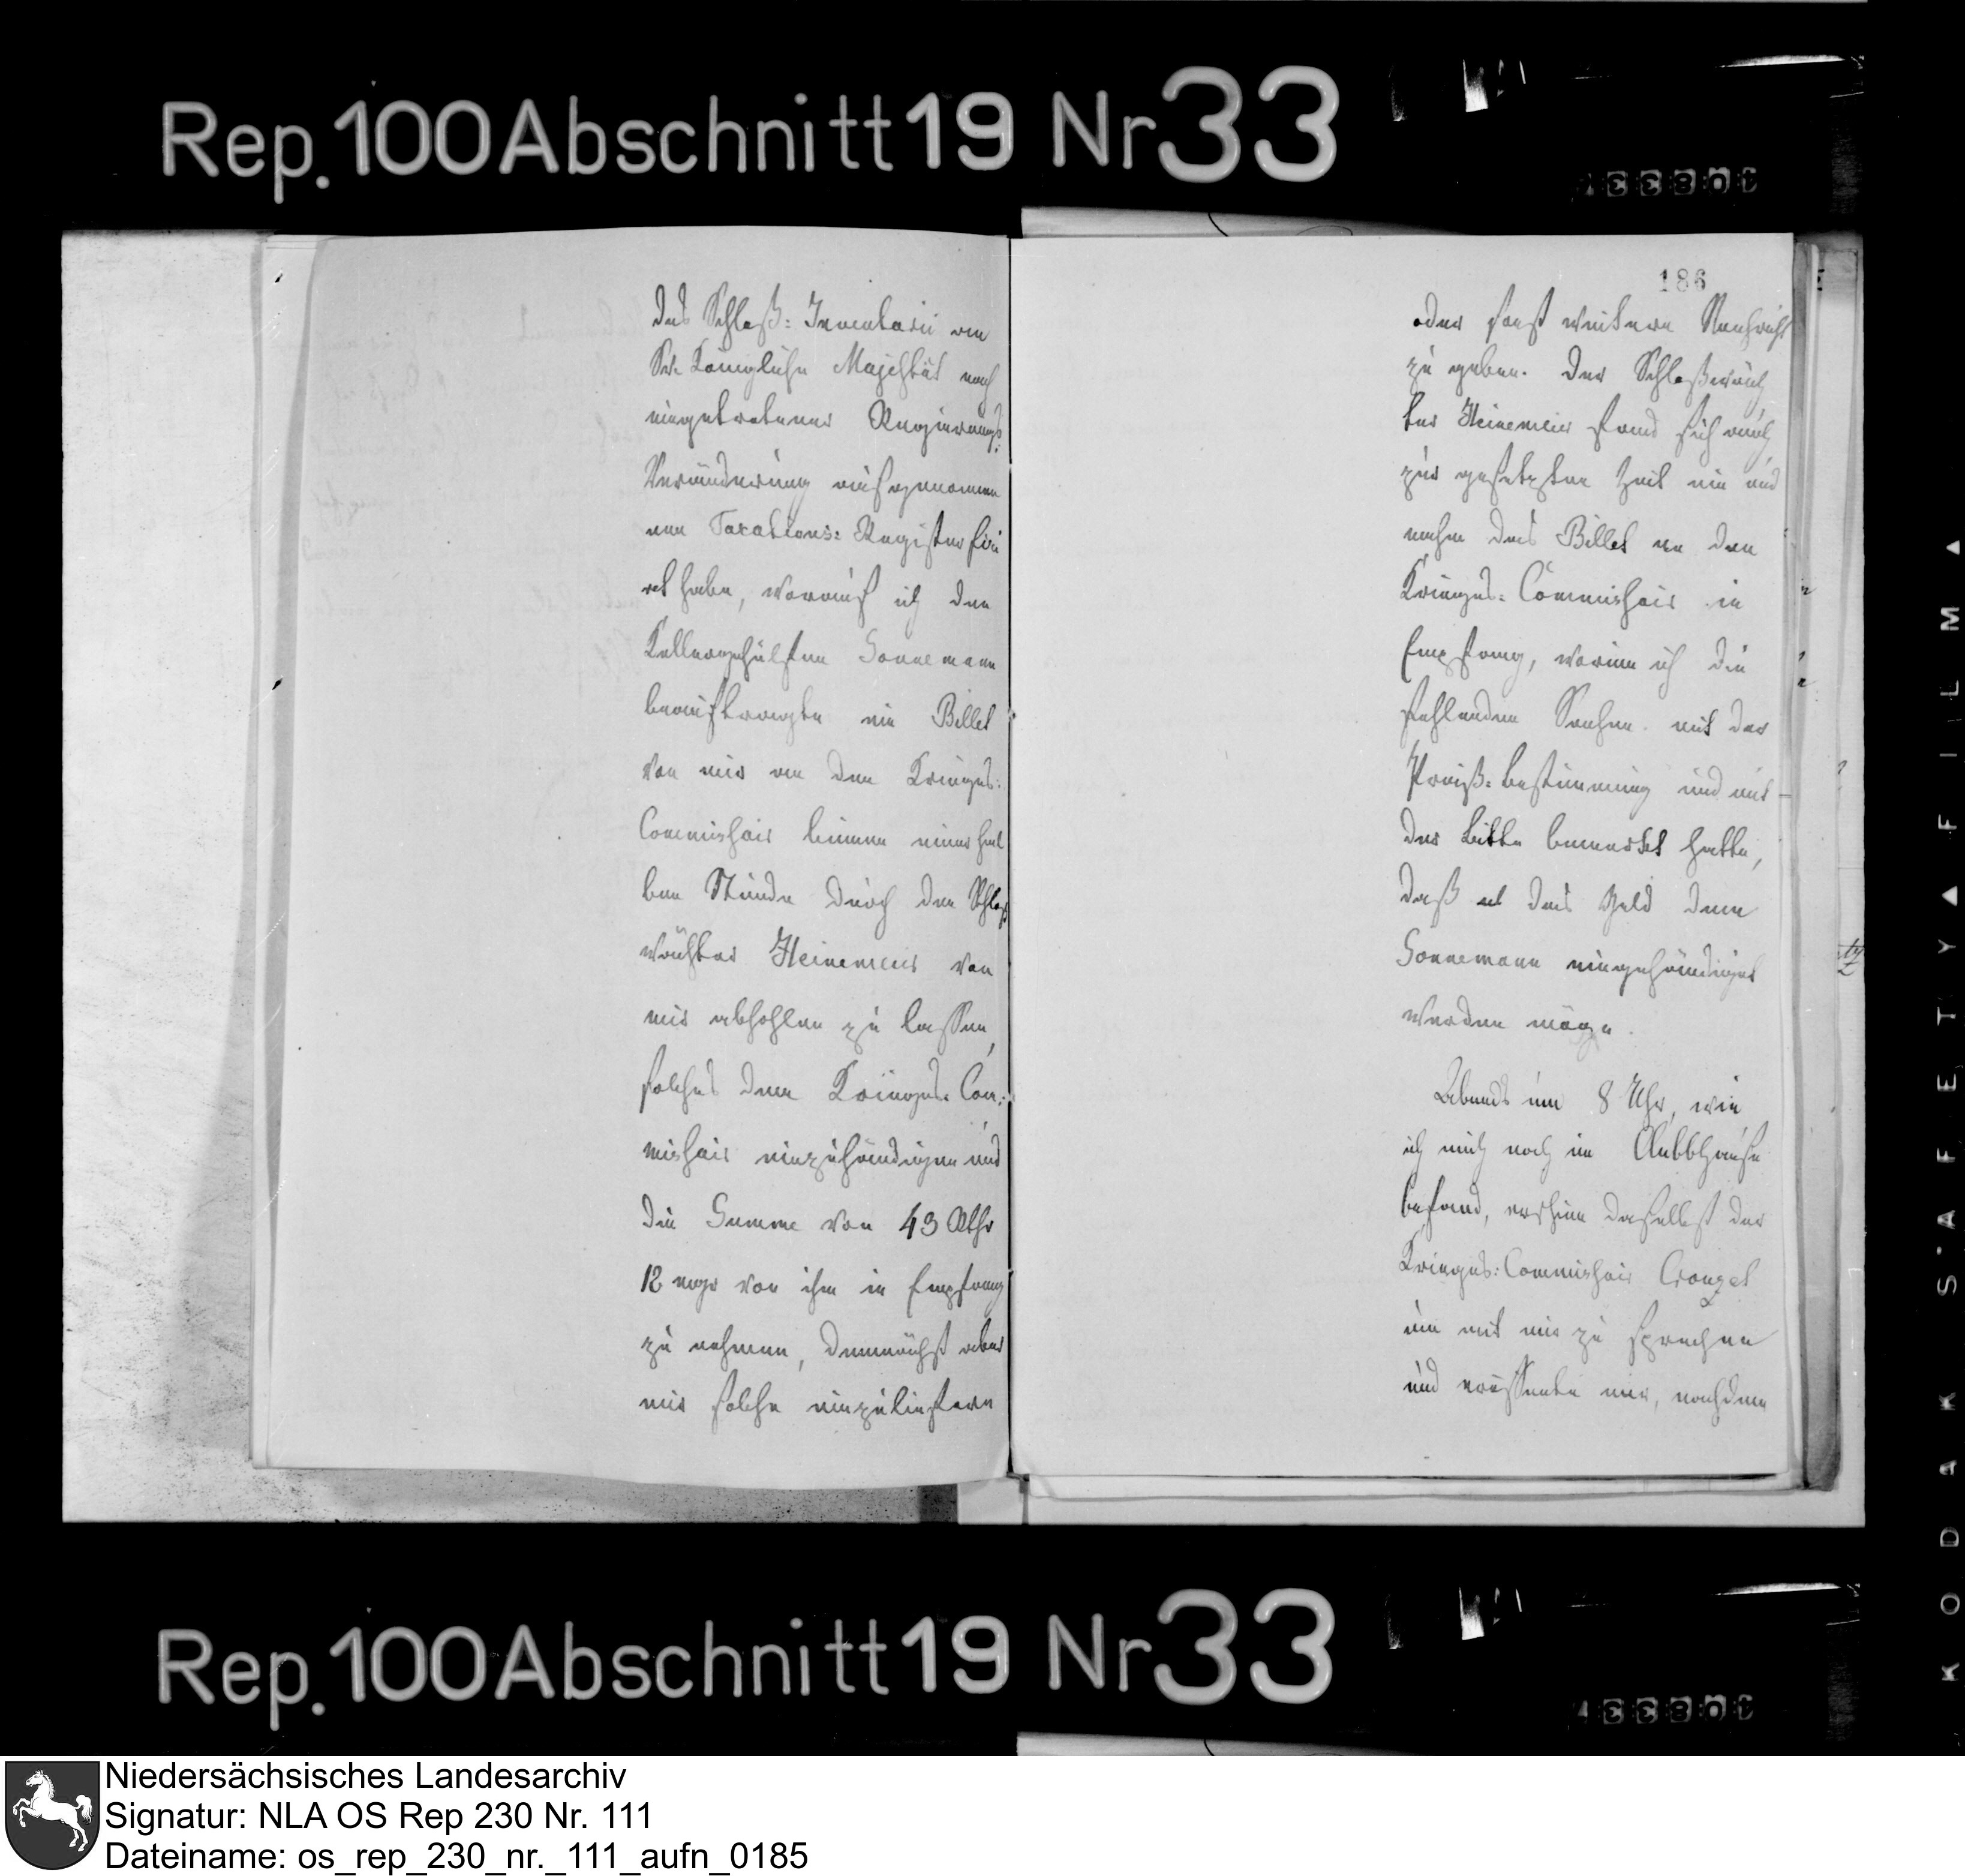 Rep. 100 Abschnitt 19 Nr 33
des Schloß-Inventarii an
Sr. Königliche Majestät nach
eingetretener Regierungs-
Veränderung aufgenomme
nen Taxations-Register
et habe, worauf ich den
Kellergehülfen Sonnemann
beauftragte ein Billet
von mir an den Krieges-
Commissair binnen einer hal
ben Stunde durch den Schloß
wächter Heinemeier von
mir abhohlen zu lassen,
solches dem Krieges-Com-
missair einzuhändigen und
die Summe von 43 Rthr
12 mgr von ihm in Empfang
zu nehmen, demnächst aber
mir solche einzuliefern
186
oder sonst weitere Nachricht
zu geben. Der Schloßwäch
ter Heinemeier fand sich auch
zur gesetzten Zeit ein und
nahm das Billet an den
Krieges-Commissair in
Empfang, worinn ich die
fehlenden Sachen mit der
Preiß-bestimmung und mit
der Bitte bemerket hatte,
daß et das Geld dem
Sonnemann eingehändiget
werden möge.
Abends um 8 Uhr, wie
ich mich noch im Clubbhause
befand, erschien daselbst der
Krieges-Commissair Crouzet
um mit mir zu sprechen
und mir, nachdem
Rep. 100 Abschnitt 19 Nr 33
KODAK SAFETY FILM
Niedersächsisches Landesarchiv
Signatur: NLA OS Rep 230 Nr. 111
Dateiname: os_rep_230_nr._111_aufn_0185